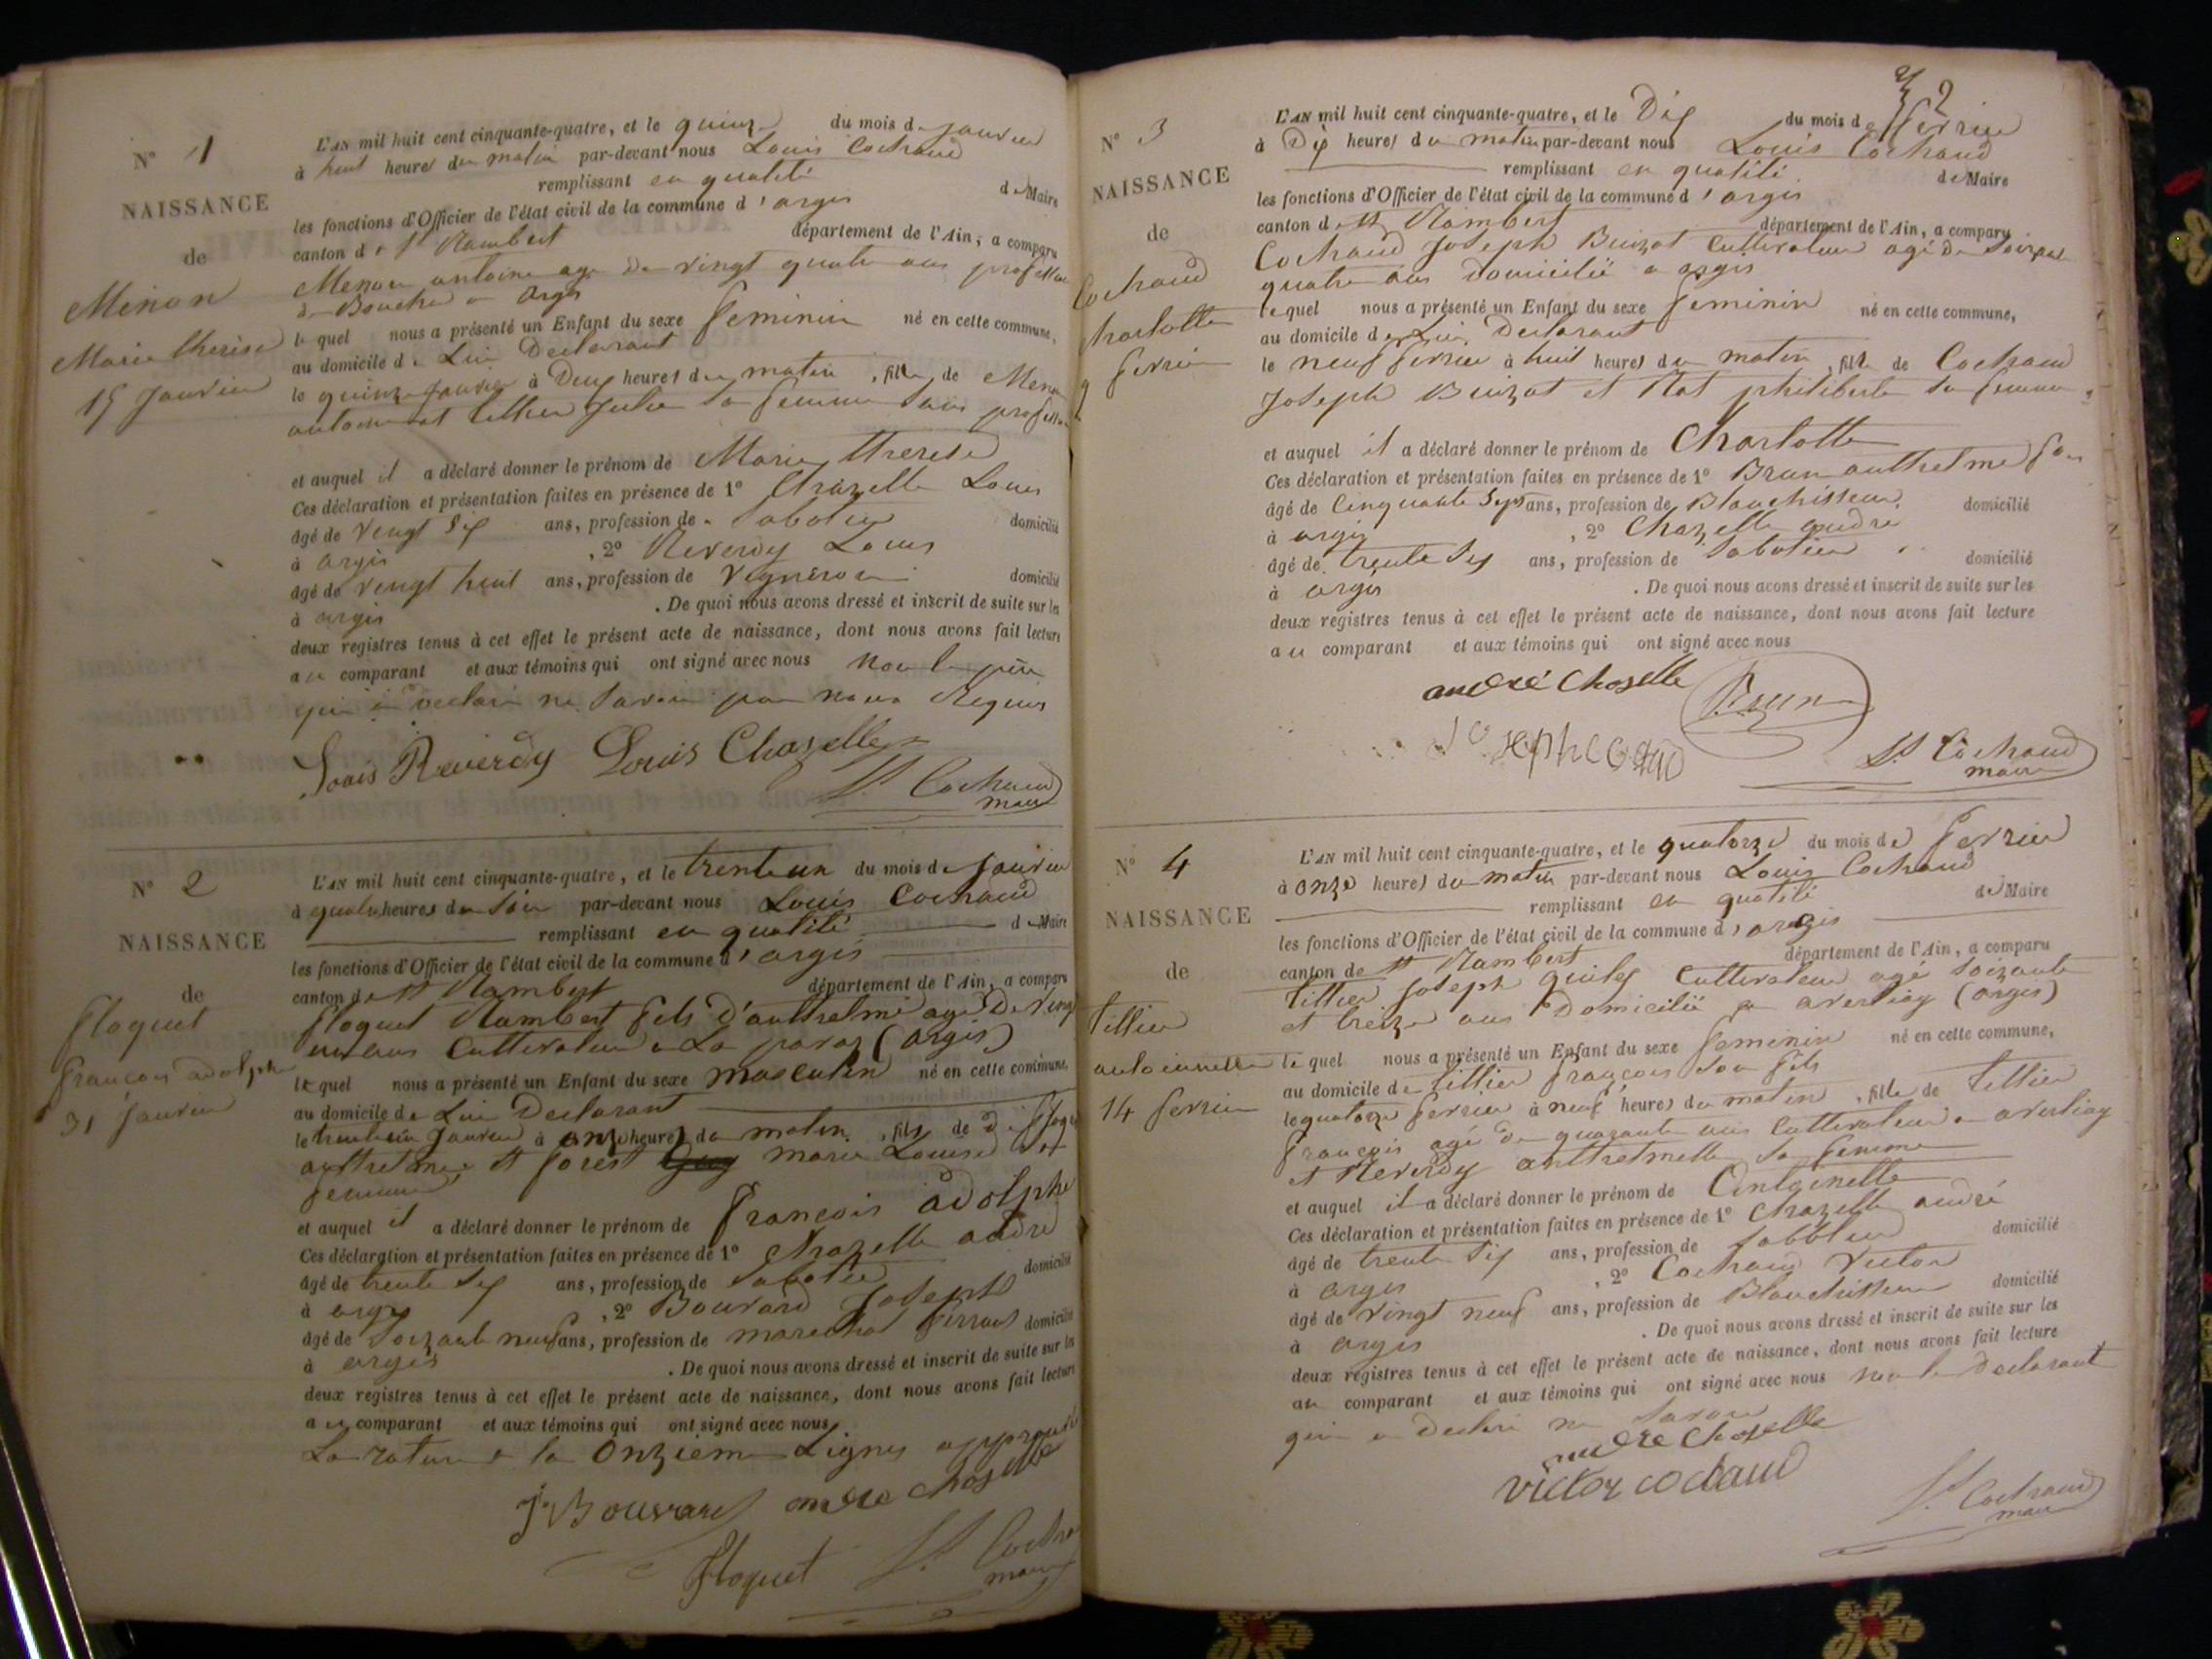 N° 1
NAISSANCE
de
Menon
Marie therese
15 Janvier
L'AN mil huit cent cinquante-quatre, et le quinze du mois de janvier
à huit heures du matin par-devant nous Louis Cochaud
remplissant en qualité de Maire
les fonctions d'Officier de l'état civil de la commune d'argis
canton de st Rambert département de l'Ain, a comparu
Menon antoine age de vingt quatre ans
à argis
lequel nous a présenté un Enfant du sexe feminin né en cette commune,
au domicile de Lui Declarant
le quinze janvier à Deux heures du matin, fille de Menon
antoine et tillier Julie sa femme sans profession
et auquel il a déclaré donner le prénom de Marie therese
Ces déclaration et présentation faites en présence de 1° Chazelle Louis
âgé de vingt six ans, profession de sabotier domicilié
à argis, 2° Reverdy Louis
âgé de vingt huit ans, profession de vigneron domicilié
à argis. De quoi nous avons dressé et inscrit de suite sur les
deux registres tenus à cet effet le présent acte de naissance, dont nous avons fait lecture
au comparant et aux témoins qui ont signé avec nous non le père
qui a declaré ne savoir par nous Requis
Louis Reverdy Louis Chazelle
Ls Cochaud
maire
N° 2
NAISSANCE
de
floquet
francois adolphe
31 Janvier
L'AN mil huit cent cinquante-quatre, et le trente un du mois de janvier
à quatre heures du soir par-devant nous Louis Cochaud
remplissant en qualité de Maire
les fonctions d'Officier de l'état civil de la commune d'argis
canton de st Rambert département de l'Ain, a comparu
floquet Rambert fils d'anthelme agé De vingt
un ans Cultivateur (argis)
lequel nous a présenté un Enfant du sexe masculin né en cette commune,
au domicile de Lui Declarant
le trente un Janvier à onze heures du matin, fils de
anthelme et forest marie Louise sa
femme
et auquel il a déclaré donner le prénom de françois adolphe
Ces déclaration et présentation faites en présence de 1° Chazelle andré
âgé de trente six ans, profession de sabotier domicilié
à argis, 2° Bouvard Joseph
âgé de soizante neuf ans, profession de marechal ferrant domicilié
à argis. De quoi nous avons dressé et inscrit de suite sur les
deux registres tenus à cet effet le présent acte de naissance, dont nous avons fait lecture
au comparant et aux témoins qui ont signé avec nous
La rature a la onzieme Lignes approuvé
J Bouvard andré chazelle
floquet Ls Cochaud
maire
2
N° 3
NAISSANCE
de
Cochaud
Charlotte
9 fevrier
L'AN mil huit cent cinquante-quatre, et le Dix du mois de fevrier
à Dix heures du matin par-devant nous Louis Cochaud
remplissant en qualité de Maire
les fonctions d'Officier de l'état civil de la commune d'argis
canton de st Rambert département de l'Ain, a comparu
Cochaud Joseph Buizat Cultivateur agé de
quatre ans domicilié a argis
lequel nous a présenté un Enfant du sexe feminin né en cette commune,
au domicile de Lui Declarant
le neuf fevrier à huit heures du matin, fille de Cochaud
Joseph Buizat et Rat philiberte sa femme
et auquel il a déclaré donner le prénom de Charlotte
Ces déclaration et présentation faites en présence de 1° Brun anthelme
âgé de Cinquante sept ans, profession de Blanchisseur domicilié
à argis, 2° Chazelle andré
âgé de trente six ans, profession de sabotier domicilié
à argis. De quoi nous avons dressé et inscrit de suite sur les
deux registres tenus à cet effet le présent acte de naissance, dont nous avons fait lecture
au comparant et aux témoins qui ont signé avec nous
andré chazelle Brun
Ls Cochaud
maire
N° 4
NAISSANCE
de
tillier
antoinnette
14 fevrier
L'AN mil huit cent cinquante-quatre, et le quatorze du mois de fevrier
à onze heures du matin par-devant nous Louis Cochaud
remplissant en qualité de Maire
les fonctions d'Officier de l'état civil de la commune d'argis
canton de st Rambert département de l'Ain, a comparu
tillier Joseph Cultivateur agé soizante
et treize ans Domicilié a averliaz (argis)
lequel nous a présenté un Enfant du sexe feminin né en cette commune,
au domicile de tillier françois son fils
le quatorze fevrier à neuf heures du matin, fille de tillier
françois agé de quarante ans Cultivateur a averliaz
et Reverdy anthelmette sa femme
et auquel il a déclaré donner le prénom de Antoinette
Ces déclaration et présentation faites en présence de 1° Chazelle andré
âgé de trente six ans, profession de sabotier domicilié
à argis, 2° Cochaud Victor
âgé de vingt neuf ans, profession de Blanchisseur domicilié
à argis. De quoi nous avons dressé et inscrit de suite sur les
deux registres tenus à cet effet le présent acte de naissance, dont nous avons fait lecture
au comparant et aux témoins qui ont signé avec nous non le declarant
qui a declaré ne savoir
andré chazelle
victor cochaud
Ls Cochaud
maire